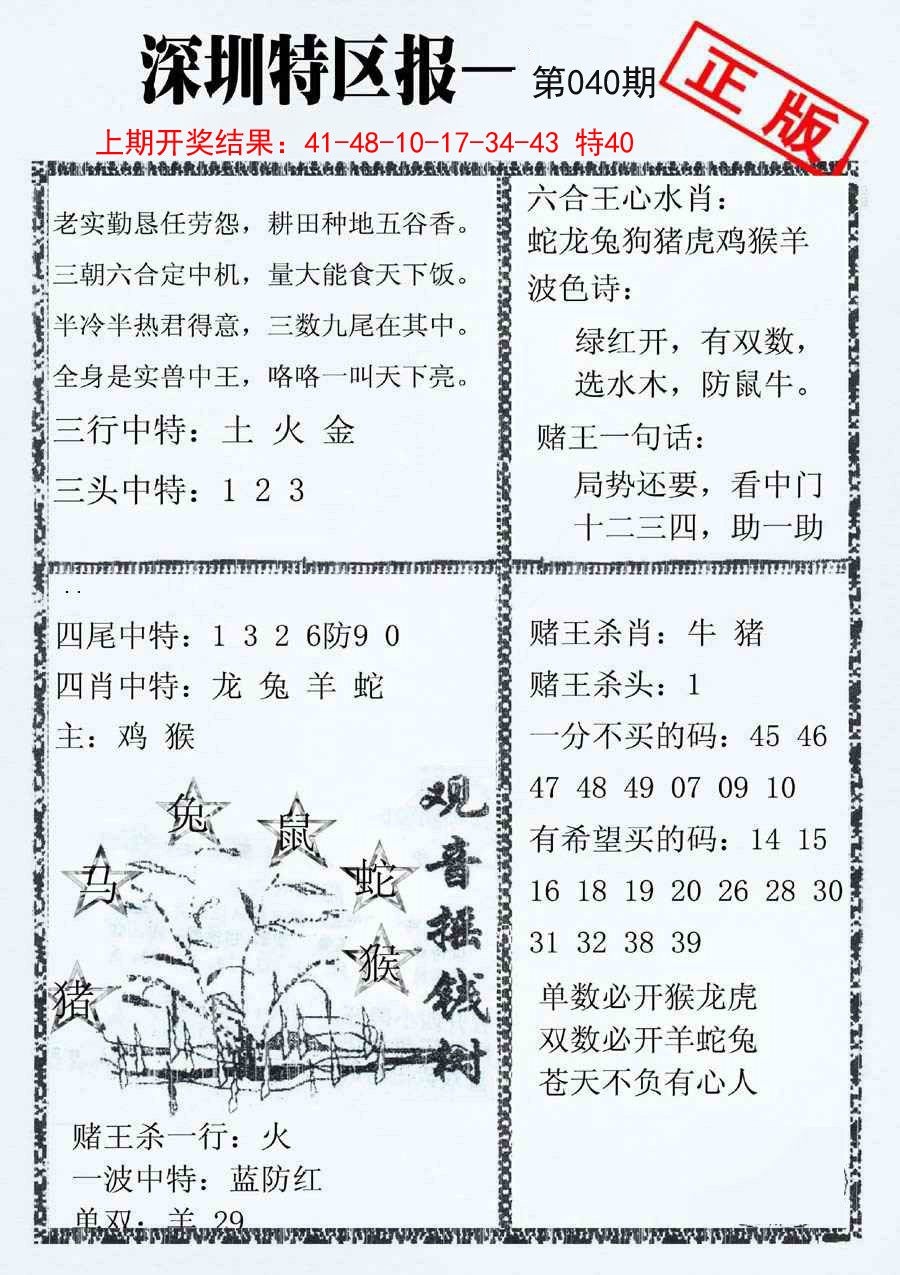 深圳特区报一 第040期
正版
上期开奖结果：41-48-10-17-34-43 特40
老实勤恳任劳怨，耕田种地五谷香。
三朝六合定中机，量大能食天下饭。
半冷半热君得意，三数九尾在其中。
全身是实兽中王，咯咯一叫天下亮。
三行中特：土 火 金
三头中特：1 2 3
六合王心水肖：
蛇龙兔狗猪虎鸡猴羊
波色诗：
绿红开，有双数，
选水木，防鼠牛。
赌王一句话：
局势还要，看中门
十二三四，助一助
四尾中特：1 3 2 6防9 0
四肖中特：龙 兔 羊 蛇
主：鸡 猴
兔
鼠
马
蛇
猴
猪
观音摇钱树
赌王杀一行：火
一波中特：蓝防红
单双：羊 29
赌王杀肖：牛 猪
赌王杀头：1
一分不买的码：45 46
47 48 49 07 09 10
有希望买的码：14 15
16 18 19 20 26 28 30
31 32 38 39
单数必开猴龙虎
双数必开羊蛇兔
苍天不负有心人